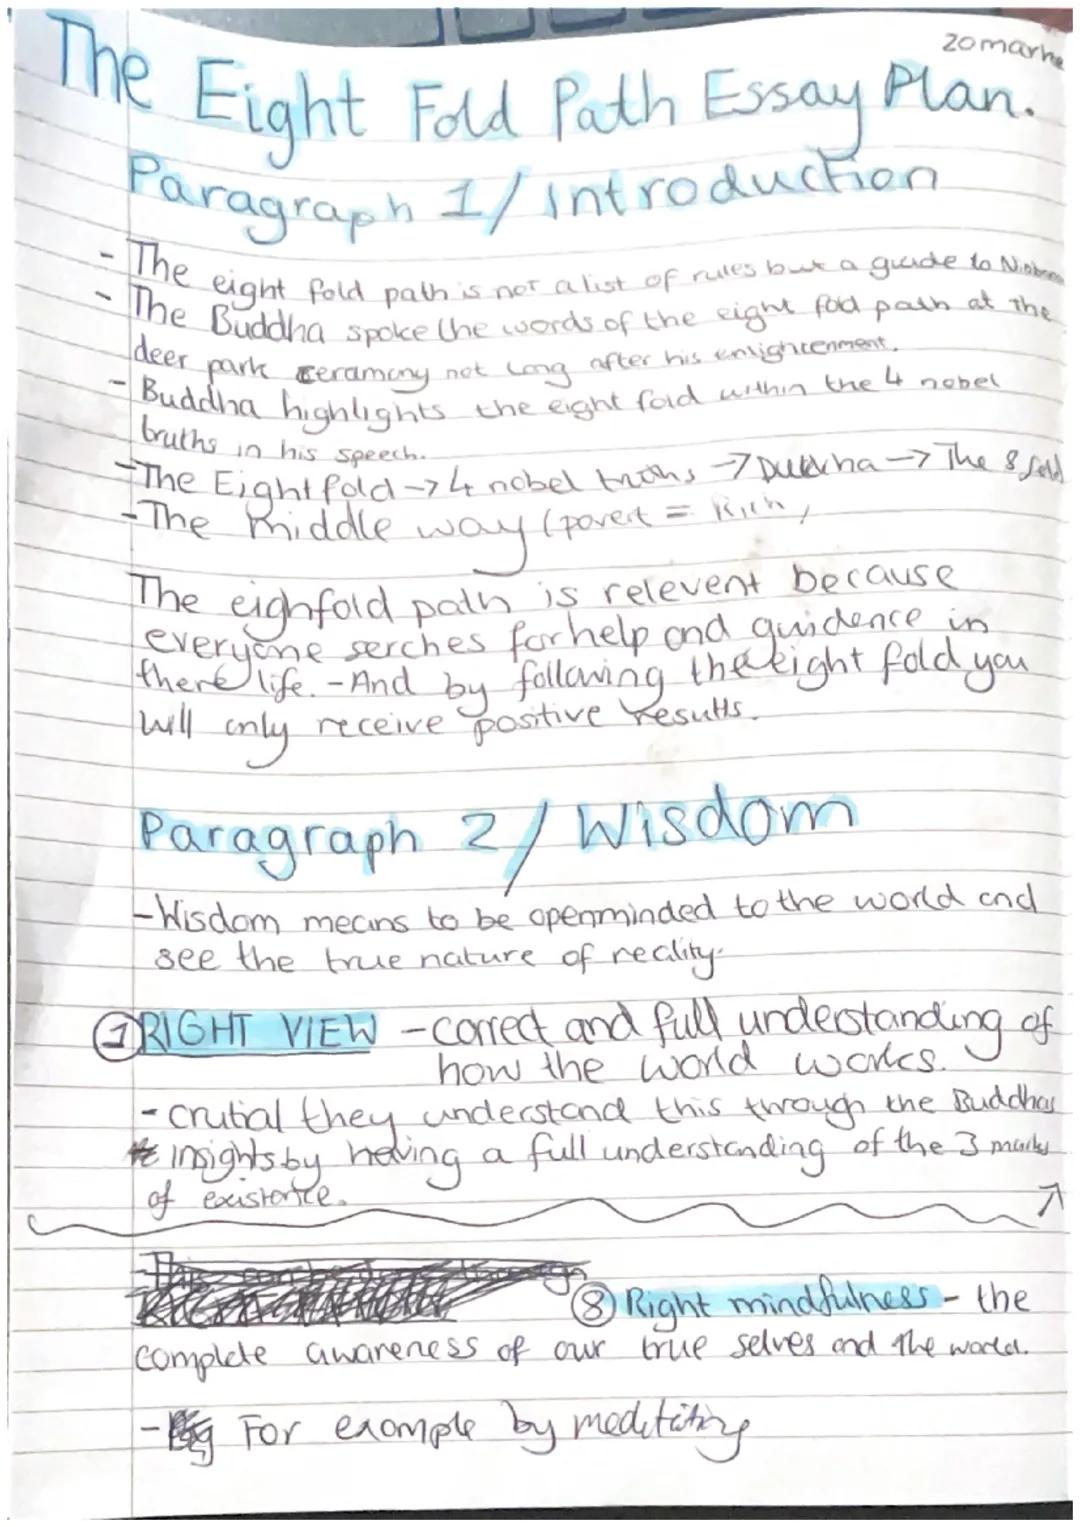 20 marke
The Eight Fold Path Essay Plan.
Paragraph 1/ Introduction
- The eight fold path is not a list of rules but a guide to
- The Buddha spoke the words of the eight fold path at the
deer park ceramony not long after his enlightenment.
- Buddha highlights the eight fold within the 4 nobel
truths in his speech.
- The Eightfold → 4 nobel truths → Dukkha → The 8 fold
- The middle way (povert = Rich /
The eighfold path is relevent because
everyone serches for help and guidence in
there life. - And by following the eight fold you
will only receive positive results.
Paragraph 2/ Wisdom
- Wisdom means to be openminded to the world and
see the true nature of reality.
① RIGHT VIEW - correct and full understanding of
how the world works.
- crutial they understand this through the Buddhas
insights by having a full understanding of the 3 marks
of existence.
⑧ Right mindfulness - the
complete awareness of our true selves and the world.
- For example by meditating